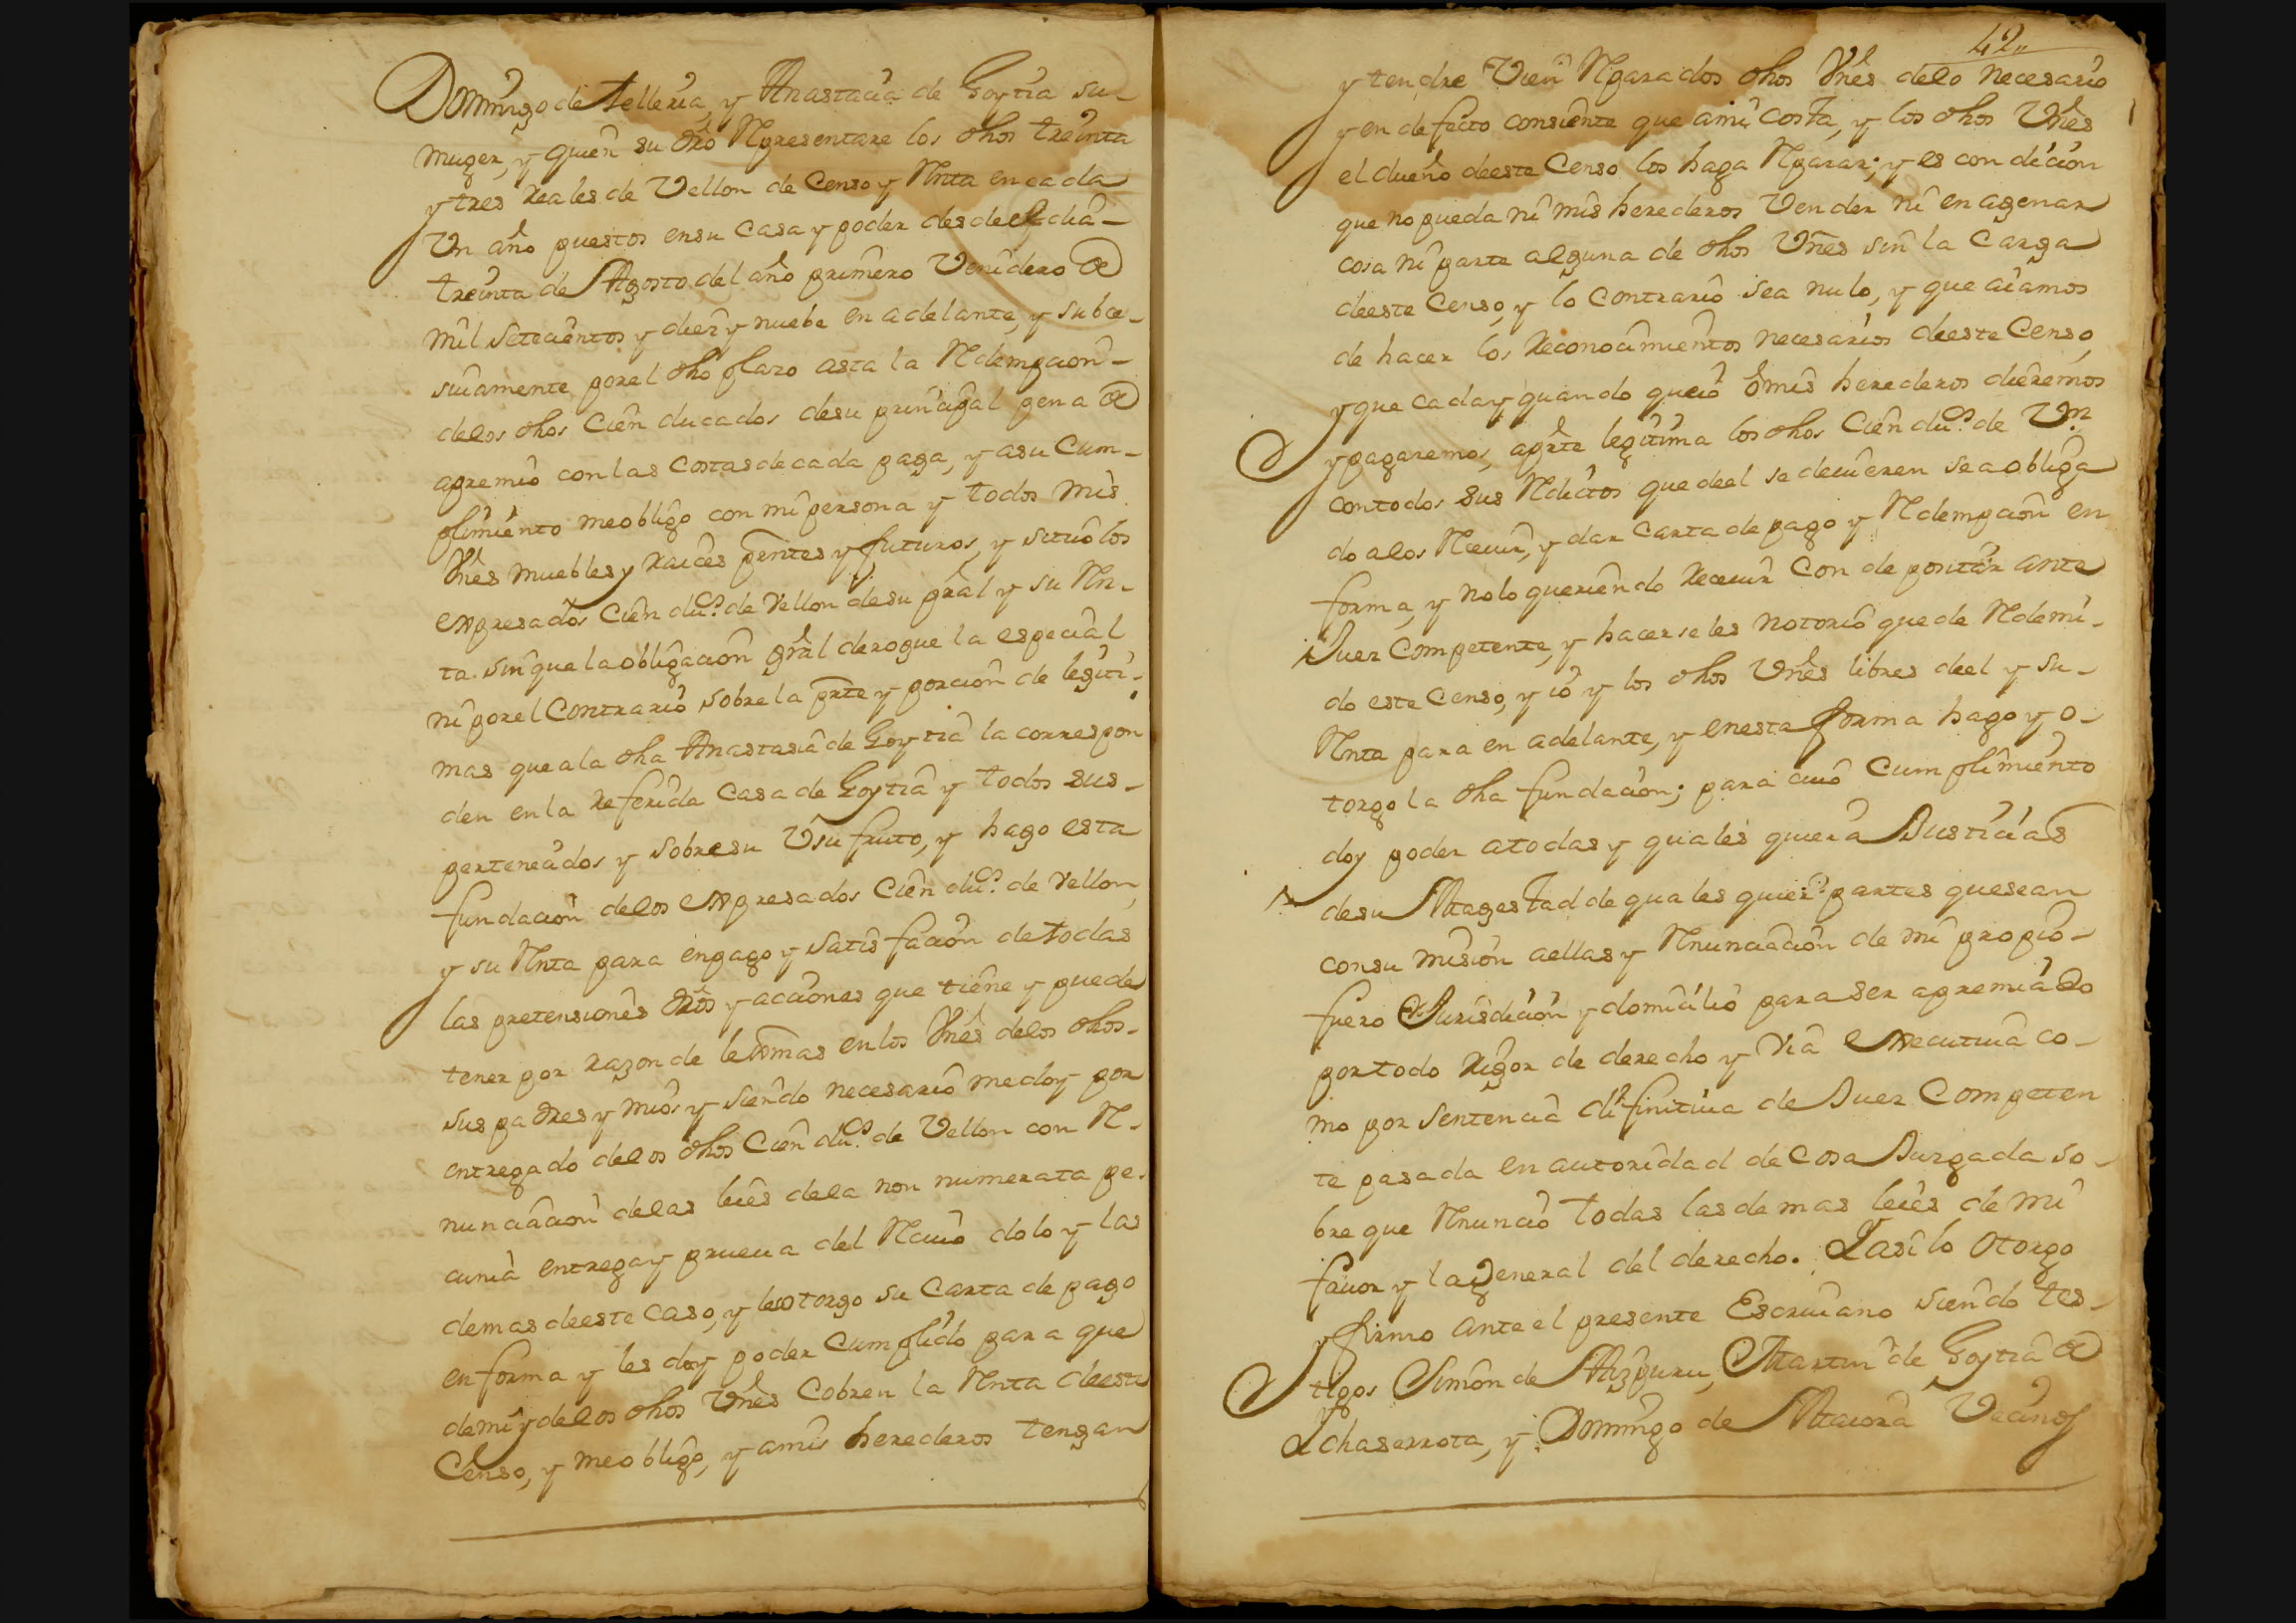 Domingo de Telleria, y Anastacia de Goytia su-
muger, y quien su dro Representare los dhos treinta
y tres Reales de Vellon de Censo y Renta en cada
Un año puestos en su Casa y poder desde el dia-
treinta de Agosto del año primero Venidero de
mil Setecientos y diez y nuebe en adelante, y subce-
siuamente por el dho plazo asta la Redempcion-
delos dhos Cien ducados desu principal pena de
apremio con las Costas de cada paga, y asu Cum-
plimiento me obligo con mi persona y todos mis
Vnes muebles y Raices presntes y futuros, y situo los
expresados Cien dus. de Vellon de su pral y su Ren-
ta. sin que la obligacion gral derogue la especial
ni por el Contrario sobre la prte y porcion de legiti-
mas que a la dha Anastasia de Goytia la correspon
den en la Referida Casa de Goytia y todos sus-
pertenecidos y sobre su Vsufruto, y hago esta
fundacion delos expresados Cien dus. de Vellon,
y su Renta para en pago y Satisfacion de todas
las pretensiones dros y acciones que tiene y puede
tener por Razon de lexitimas en los Vnes delos dhos-
sus padres y mios y siendo necesario me doy por
entregado delos dhos Cien dus. de Vellon con Re-
nunciacion delas leies dela non numerata pe-
cunia entrega y prueua del Reciuo dolo y las
demas deeste Caso, y le otorgo su Carta de pago
en forma y les doy poder Cumplido para que
de mi y delos dhos Vnes Cobren la Renta deeste
Censo, y me obligo, y a mis herederos tengan
42
y tendre Vien Reparados dhos Vnes delo necesario
y en defecto consiente que a mi costa, y los dhos Vnes
el dueño deeste Censo los haga Reparar; y es condicion
que no pueda ni mis herederos Vender ni enagenar
cosa ni parte alguna de dhos Vnes sin la Carga
deeste Censo, y lo Contrario sea nulo, y que aiamos
de hacer los Reconocimientos necesarios deeste Censo,
y que cada y quando que io o mis herederos dieremos
y pagaremos, a prte legitima los dhos Cien dus. de Vn
con todos sus Reditos que deel se deuieren sea obliga
do a los Reciuir, y dar Carta de pago y Redempcion en
forma, y no lo queriendo Receuir Con depositar ante
Juez Competente, y hacerseles notorio quede Redemi-
do este Censo, y io y los dhos Vnes libres deel y su-
Renta para en adelante, y en esta forma hago y o-
torgo la dha fundacion; para cuio Cumplimiento
doy poder a todas y quales quiera Justicias
de su Magestad de quales quier partes que sean
con su mision a ellas y Renunciacion de mi propio-
fuero Jurisdicion y domicilio para ser apremiado
por todo Rigor de derecho y Via executiua co-
mo por sentencia difinitiua de Juez Competen
te pasada en autoridad de Cosa Juzgada so-
bre que Renuncio todas las demas leies de mi
fauor y la general del derecho. Y asi lo otorgo
y firmo ante el presente Escriuano siendo tes-
tigos Simon de Aizpuru, Martin de Goytia de
Echaserrota, y Domingo de Maiora Vecinos